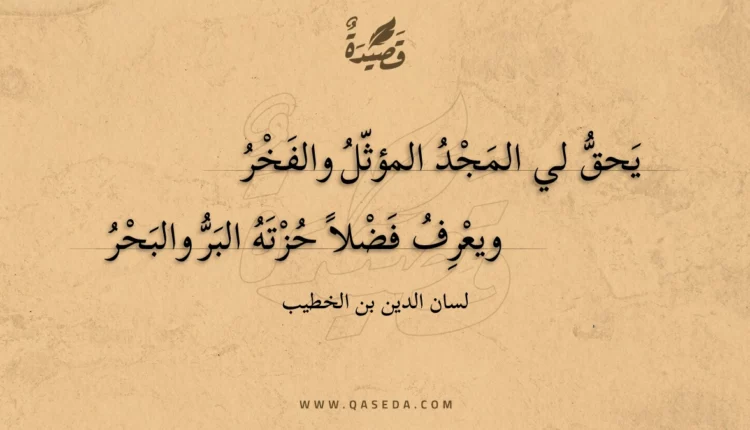 قَصِيْدَةٌ
يَحقُّ لي المَجْدُ المؤثّلُ والفَخْرُ
ويعْرِفُ فَضْلاً حُزْتَهُ البَرُّ والبَحْرُ
لسان الدين بن الخطيب
WWW.QASEDA.COM